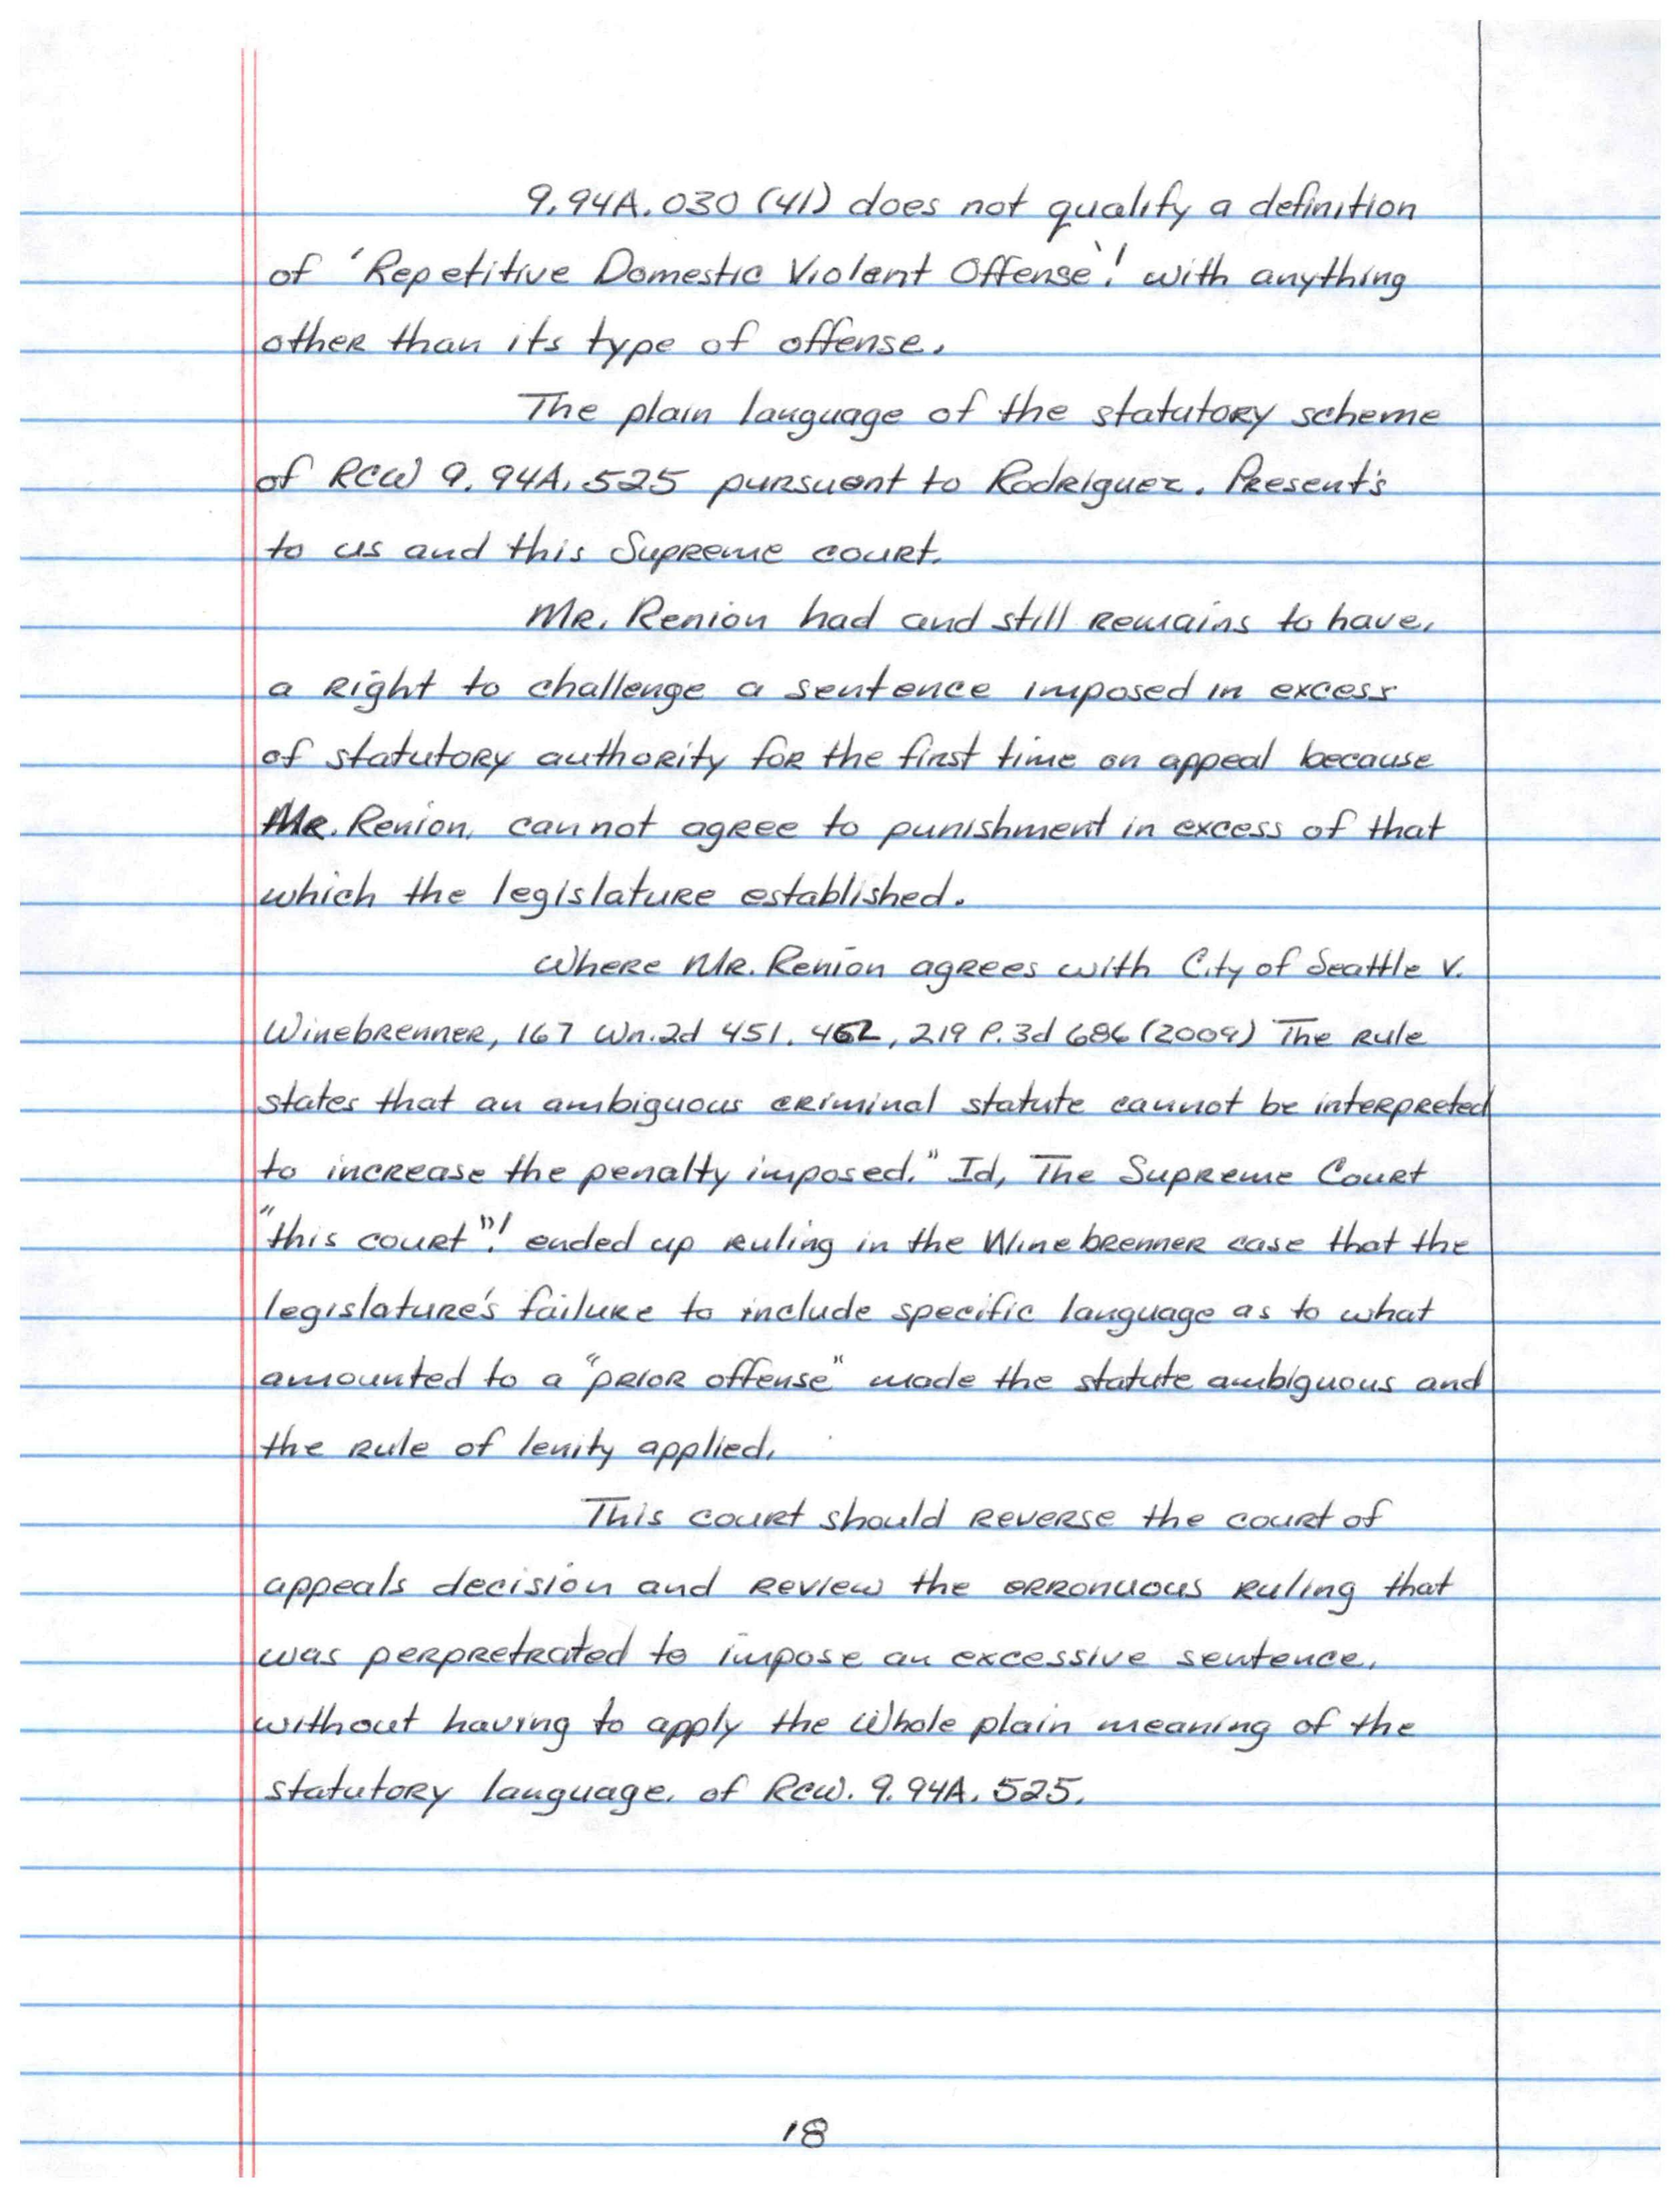 9.94A.030 (41) does not qualify a definition
of 'Repetitive Domestic Violent Offense'! with anything
other than its type of offense.
The plain language of the statutory scheme
of RCW 9.94A.525 pursuant to Rodriguez. Present's
to us and this Supreme court.
Mr. Renion had and still remains to have,
a right to challenge a sentence imposed in excess
of statutory authority for the first time on appeal because
Mr. Renion, cannot agree to punishment in excess of that
which the legislature established.
Where Mr. Renion agrees with City of Seattle v.
Winebrenner, 167 Wn.2d 451, 462, 219 P.3d 686 (2009) The rule
states that an ambiguous criminal statute cannot be interpreted
to increase the penalty imposed." Id, The Supreme Court
"this court"! ended up ruling in the Winebrenner case that the
legislature's failure to include specific language as to what
amounted to a "prior offense" made the statute ambiguous and
the rule of lenity applied.
This court should reverse the court of
appeals decision and review the erronuous ruling that
was perpretrated to impose an excessive sentence,
without having to apply the Whole plain meaning of the
statutory language. of RCW. 9.94A.525.
18